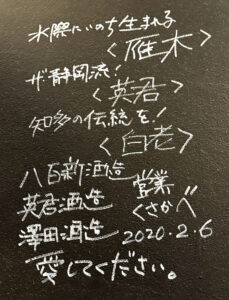 水際にいのち生まれる
<雁木>
ザ・静岡流!
<英君>
知多の伝統を!
<白老>
八百新酒造
営業
英君酒造
くさかべ
澤田酒造
2020.2.6
愛してください。